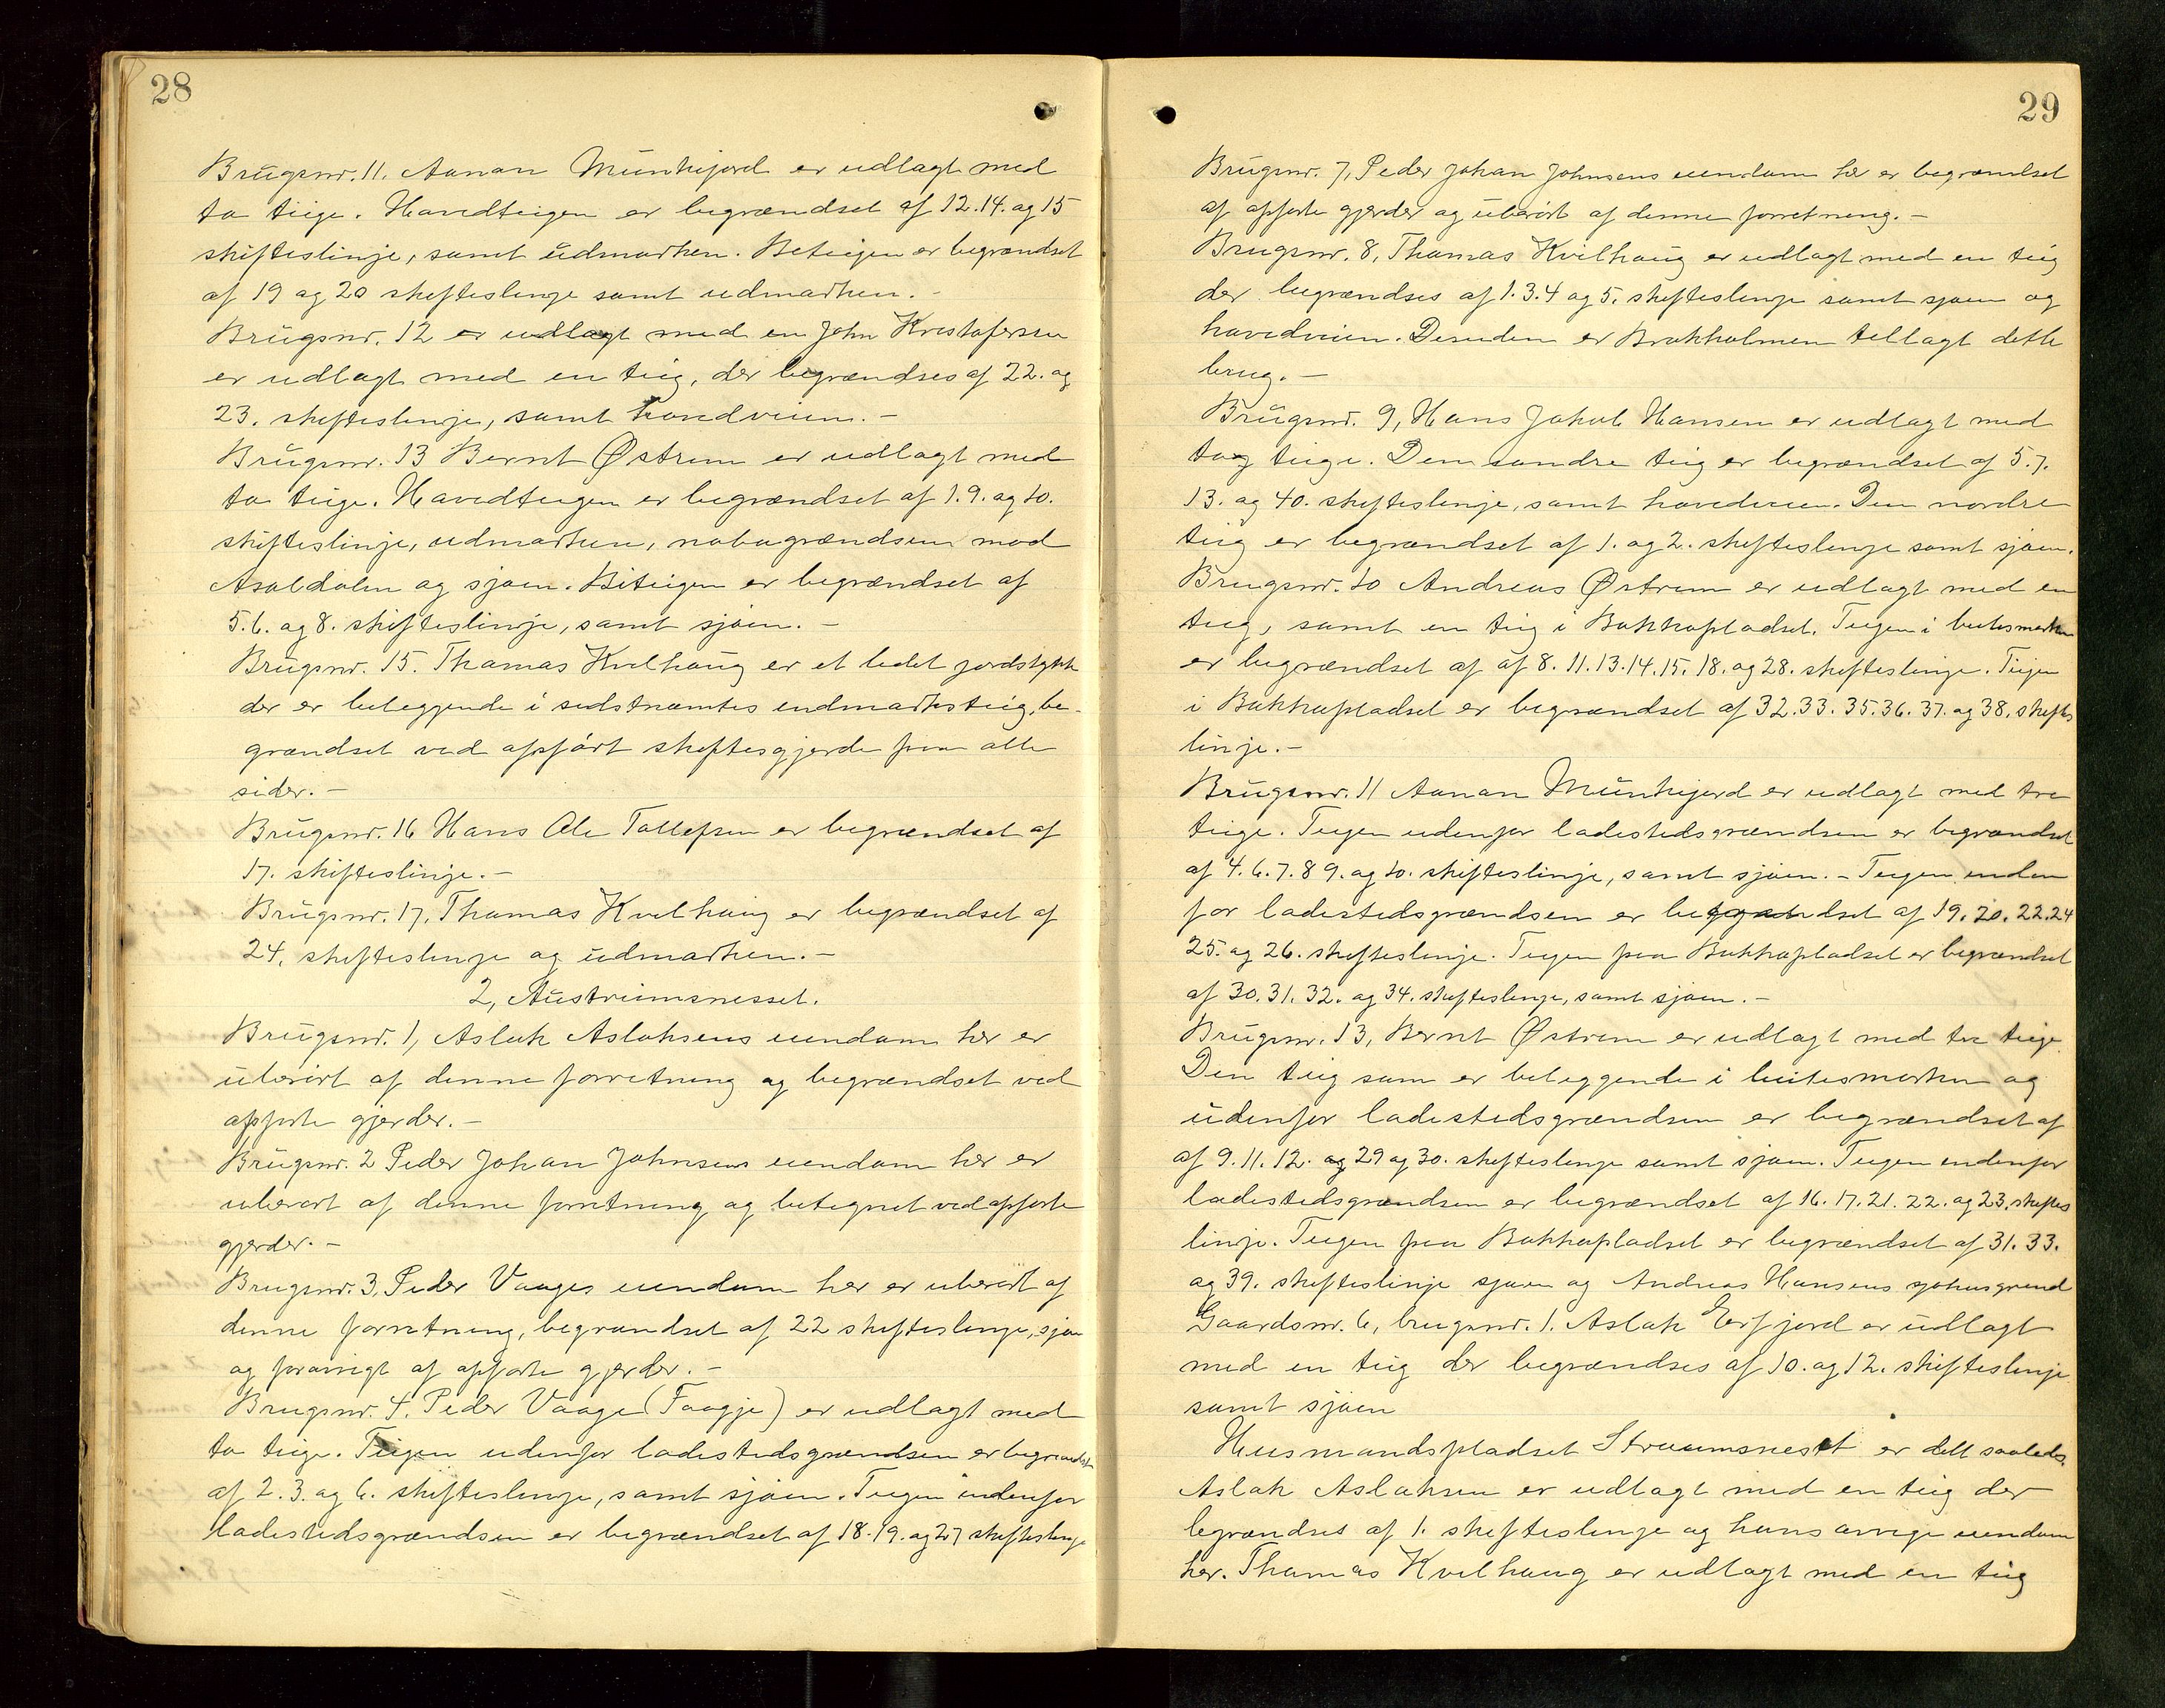 28
Brugsnr. 11. Aanan Munkejord er udlagt med
to teige. Hovedteigen er begrændset af 12. 14. og 15
skifteslinje, samt udmarken. Beteigen er begrændset
af 19 og 20 skifteslinje samt udmarken. -
Brugsnr. 12 er udlagt med en John Kristofersen
er udlagt med en teig, der begrændses af 22. og
23. skifteslinje, samt hovedveien. -
Brugsnr. 13 Bernt Østrem er udlagt med
to teige. Hovedteigen er begrændset af 1. 9. og 10.
skifteslinje, udmarken, nabogrændsen mod
Asaldalen og sjøen. Biteigen er begrændset af
5. 6. og 8. skifteslinje, samt sjøen. -
Brugsnr. 15. Thomas Kvilhaug er et lidet jordstykke
der er beleggende i sidstnæmtes indmarksteig, be-
grændset ved opført skiftesgjerde fra alle
sider. -
Brugsnr. 16 Hans Ole Tollefsen er begrændset af
17. skifteslinje. -
Brugsnr. 17, Thomas Kvilhaug er begrændset af
24. skifteslinje og udmarken. -
2, Austreimsnesset.
Brugsnr. 1, Aslak Aslaksens eiendom her er
uberørt af denne forretning og begrændset ved
opførte gjerder. -
Brugsnr. 2 Peder Johan Johnsens eiendom her er
uberørt af denne forretning og betegnet ved opførte
gjerder. -
Brugsnr. 3, Peder Vaages eiendom her er uberørt af
denne forretning, begrændset af 22 skifteslinje, sjøen
og forøvrigt af opførte gjerder. -
Brugsnr. 4. Peder Vaage (Faagje) er udlagt med
to teige. Teigen udenfor ladestedsgrændsen er begrændset
af 2. 3. og 6. skifteslinje, samt sjøen. Teigen indenfor
ladestedsgrændsen er begrændset af 18. 19. og 27 skifteslinje
29
Brugsnr. 7, Peder Johan Johnsens eiendom her er begrændset
af opførte gjerder og uberørt af denne forretning. -
Brugsnr. 8, Thomas Kvilhaug er udlagt med en teig
der begrændses af 1. 3. 4 og 5. skifteslinje samt sjøen og
hovedveien. Desuden er Brokholmen tillagt dette
brug. -
Brugsnr. 9, Hans Jakob Hansen er udlagt med
tog teige. Den søndre teig er begrændset af 5. 7.
13. og 40. skifteslinje, samt hovedveien. Den nordre
teig er begrændset af 1. og 2. skifteslinje samt sjøen.
Brugsnr. 10 Andreas Østrem er udlagt med en
teig, samt en teig i Bakkapladset. Teigen i beitesmarken
er begrændset af af 8. 11. 13. 14. 15. 18. og 28. skifteslinje. Teigen
i Bakkapladset er begrændset af 32. 33. 35. 36. 37. og 38. skiftes
linje. -
Brugsnr. 11 Aanan Munkejord er udlagt med tre
teige. Teigen udenfor ladestedsgrændsen er begrændset
af 4. 6. 7. 8 9. og 10. skifteslinje, samt sjøen. - Teigen inden
for ladestedsgrændsen er begrændset af 19. 20. 22. 24
25. og 26. skifteslinje. Teigen paa Bakkapladset er begrændset
af 30. 31. 32. og 34. skifteslinje, samt sjøen. -
Brugsnr. 13, Bernt Østrem er udlagt med tre teige.
Den teig som er beleggende i beitesmarken og
udenfor ladestedsgrændsen er begrændset af
af 9. 11. 12. og 29 og 30. skifteslinje samt sjøen. Teigen indenfor
ladestedsgrændsen er begrændset af 16. 17. 21. 22. og 23. skiftes
linje. Teigen paa Bakkapladset er begrændset af 31. 33.
og 39. skifteslinje sjøen og Andreas Hansens sjøhusgrund
Gaardsnr. 6, brugsnr. 1. Aslak Erfjord er udlagt
med en teig der begrændses af 10. og 12. skifteslinje
samt sjøen
Husmandspladset Straumsneset er delt saaledes.
Aslak Aslaksen er udlagt med en teig der
begrændses af 1. skifteslinje og hans øvrige eiendom
her. Thomas Kvilhaug er udlagt med en teig